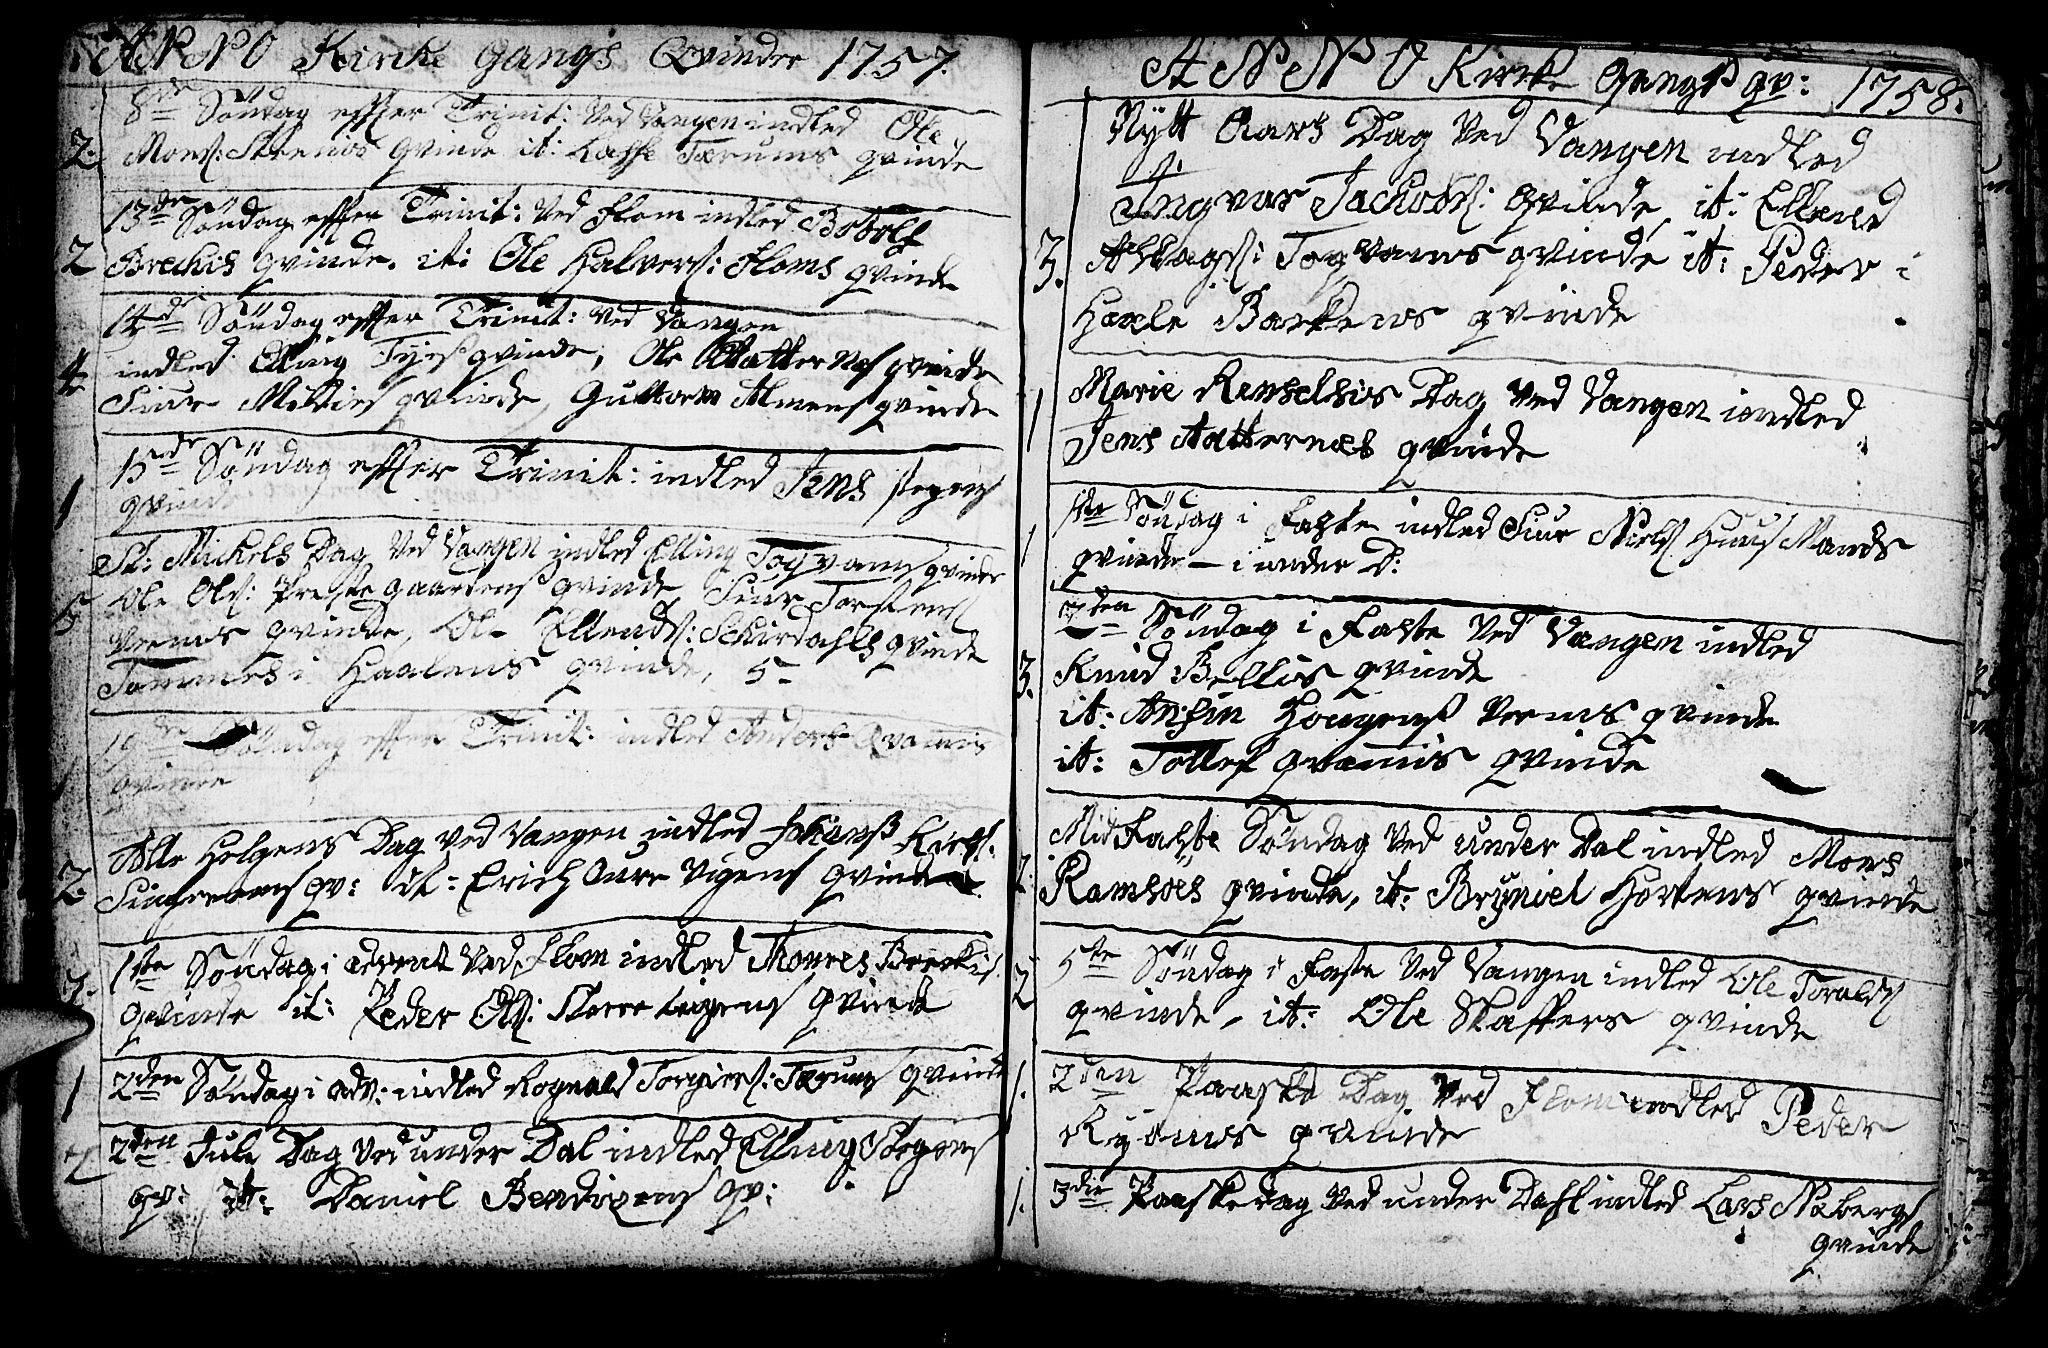 ANNO Kircke Gangs Qvinder 1757.
8de Søndag effter Trinit: Ved Vangen indled Ole
2. Mons: Stenos qvinde it: Lasse Tærums qvinde
13de Søndag effter Trinit: Ved Flom indled Botolf
2 Brechis qvinde. it: Ole Halvers: Floms qvinde
14de Søndag effter Trinit: Ved Vangen
4 indled Elling Tyes qvinde, Ole qvinde
Siur qvinde, Guttorm Almens qvinde
15de Søndag effter Trinit: indled Jens Stegens
1 qvinde
St: Mickels Dag Ved Vangen indled Elling Togvams qvinde
5 Ole Ols: Præstegaardens qvinde, Siur Torstens
Veems qvinde, Ole Ellends: Skirdahls qvinde
Tommes i Haalens qvinde, 5-
19de Søndag effter Trinit: indled Anders Qvammis
1 qvinde
Alle Helgens Dag Ved Vangen indled Johans
2. qv: it: Erich Aure Vigens qvinde
1ste Søndag i advent Ved Flom indled Monses Brechis
2. qvinde it: Peder Ols: qvinde
1 2den Søndag i adv: indled Rognald Torgiers: Tærums qvinde
2 2den Jule Dag Ved under Dal indled Elling Stegens
qv: it: Daniel Bendixens qv:
ANNO Kirke Gangs qv: 1758.
Nytt Aars Dag Ved Vangen indled
Ingvar Jachobs: qvinde, it: Ellend
3. Aslags: Togvams qvinde it: Peder i
Haale Barkens qvinde
1 Marie Renselsis Dag Ved Vangen indled
Jens Aatternæs qvinde
1 1ste Søndag i Faste indled Siur Niels Huus Mands
qvinde - i under D:
2den Søndag i Faste Ved Vangen indled
3. Knud Bellis qvinde
it: Ansin Hougens Veems qvinde
it: Tollef qvammis qvinde
MidFaste Søndag Ved under Dal indled Mons
2. Ramsøes qvinde, it: Bryniel Hovtens qvinde
5te Søndag i Faste Ved Vangen indled Ole Toralds
2 qvinde, it: Ole Skaffers qvinde
1. 2den Paaske Dag Ved Flom indled Peder
Ryoms qvinde
1. 3die Paaskedag Ved under Dahl indled Lars Næbergs
qvinde